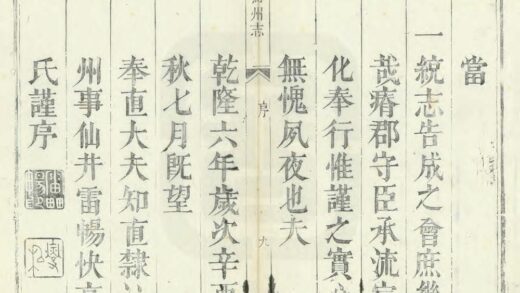 當
一統志告成之會庶幾
哉瘠郡守臣承流宣
化奉行惟謹之實
無愧夙夜也夫
州志 序 九
乾隆六年歲次辛酉
秋七月旣望
奉直大夫知直隸
州事仙井雷暢快
氏謹序